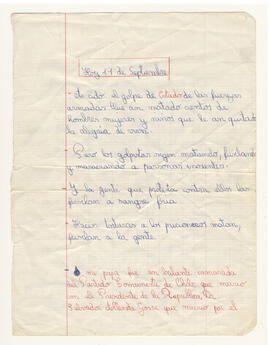 Hoy 11 de Septiembre
- A sido el golpe de Estado de las fuerzas
armadas que an matado cientos de
hombres mujeres y niños que le an quitado
la alegria de vivir.
- Pero los golpistas siguen matando, fusilando
y masacrando a personas inosentes.
- Y la gente que protesta contra ellos las
fusilan a sangre fria
- Hacen torturas a los prisioneros matan,
fusilan a la gente.
- mi papa fue un militante
del Partido Comunista de Chile que murio
con el Presidente de la Republica, Dr
Salvador Allende Gosse que murio por el